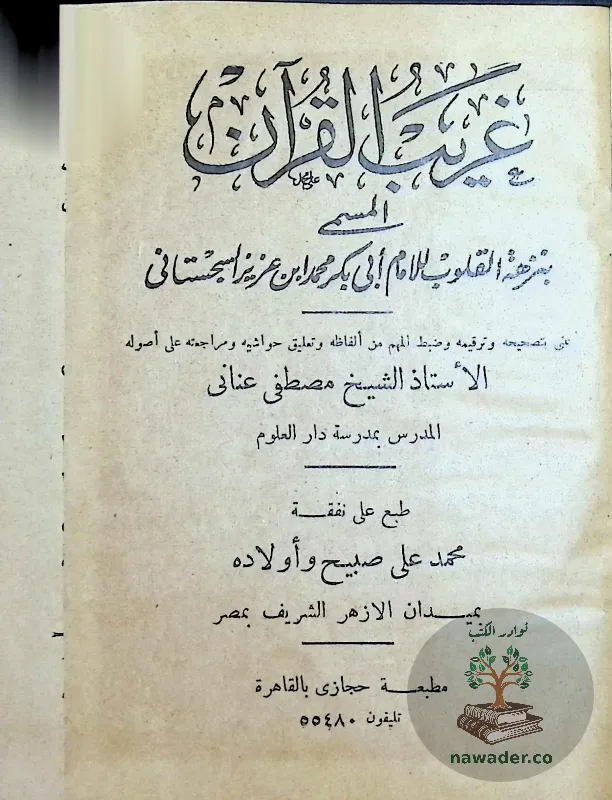 غريب القرآن
المسمى
بنزهة القلوب للامام أبي بكر محمد ابن عزيز السجستاني
عنى بتصحيحه وترقيمه وضبط المهم من ألفاظه وتعليق حواشيه ومراجعته على أصوله
الأستاذ الشيخ مصطفى عنانى
المدرس بمدرسة دار العلوم
طبع على نفقة
محمد على صبيح وأولاده
بميدان الازهر الشريف بمصر
مطبعة حجازى بالقاهرة
تليفون ٥٥٤٨٠
نوادر الكتب
nawader.co